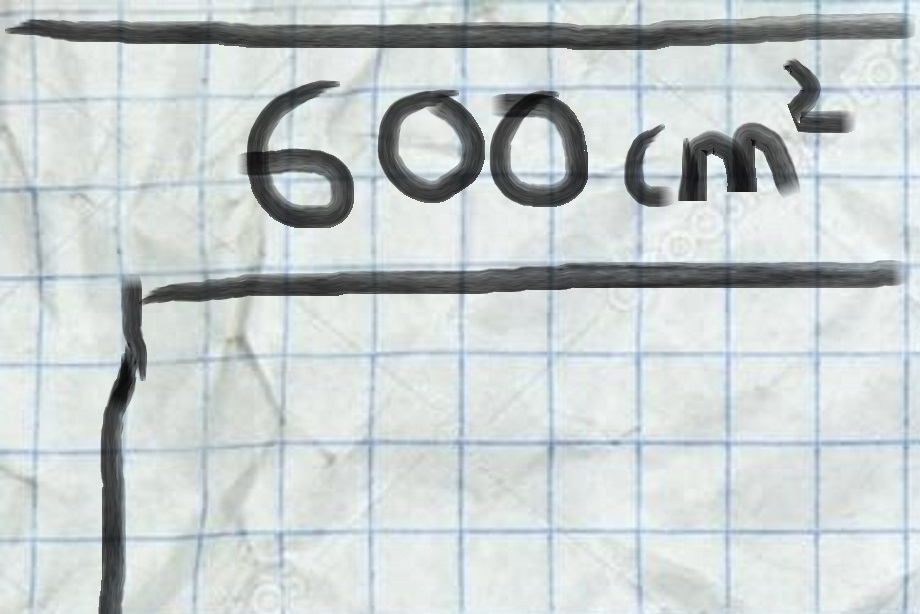 600 cm²